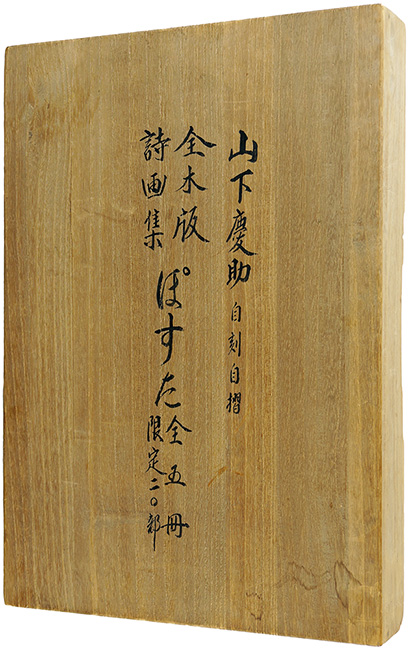 山下慶助 自刻自摺
全木版
詩画集
ぽすた
全五冊
限定二〇部